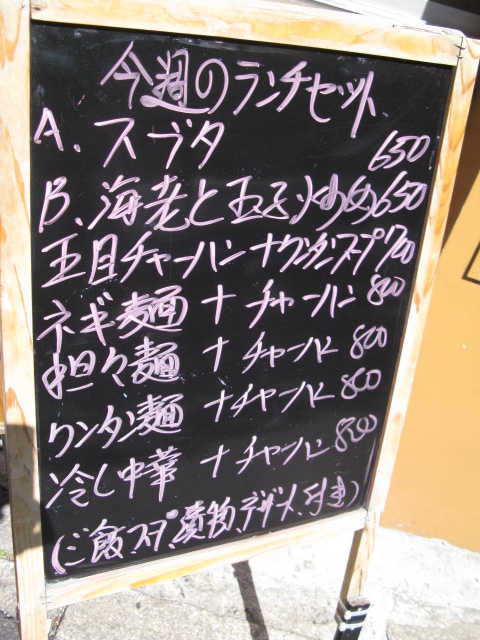 今週のランチセット
A、スブタ 650
B、海老と玉子火め 650
五目チャーハン ナワンタンスープ 700
ネギ麺 ナ チャーハン 800
担々麺 ナ チャーハン 800
ワンタン麺 ナチャーハン 800
冷し中華 ナ チャーハン 800
(ご飯、スープ、漬物、デザート、付き)